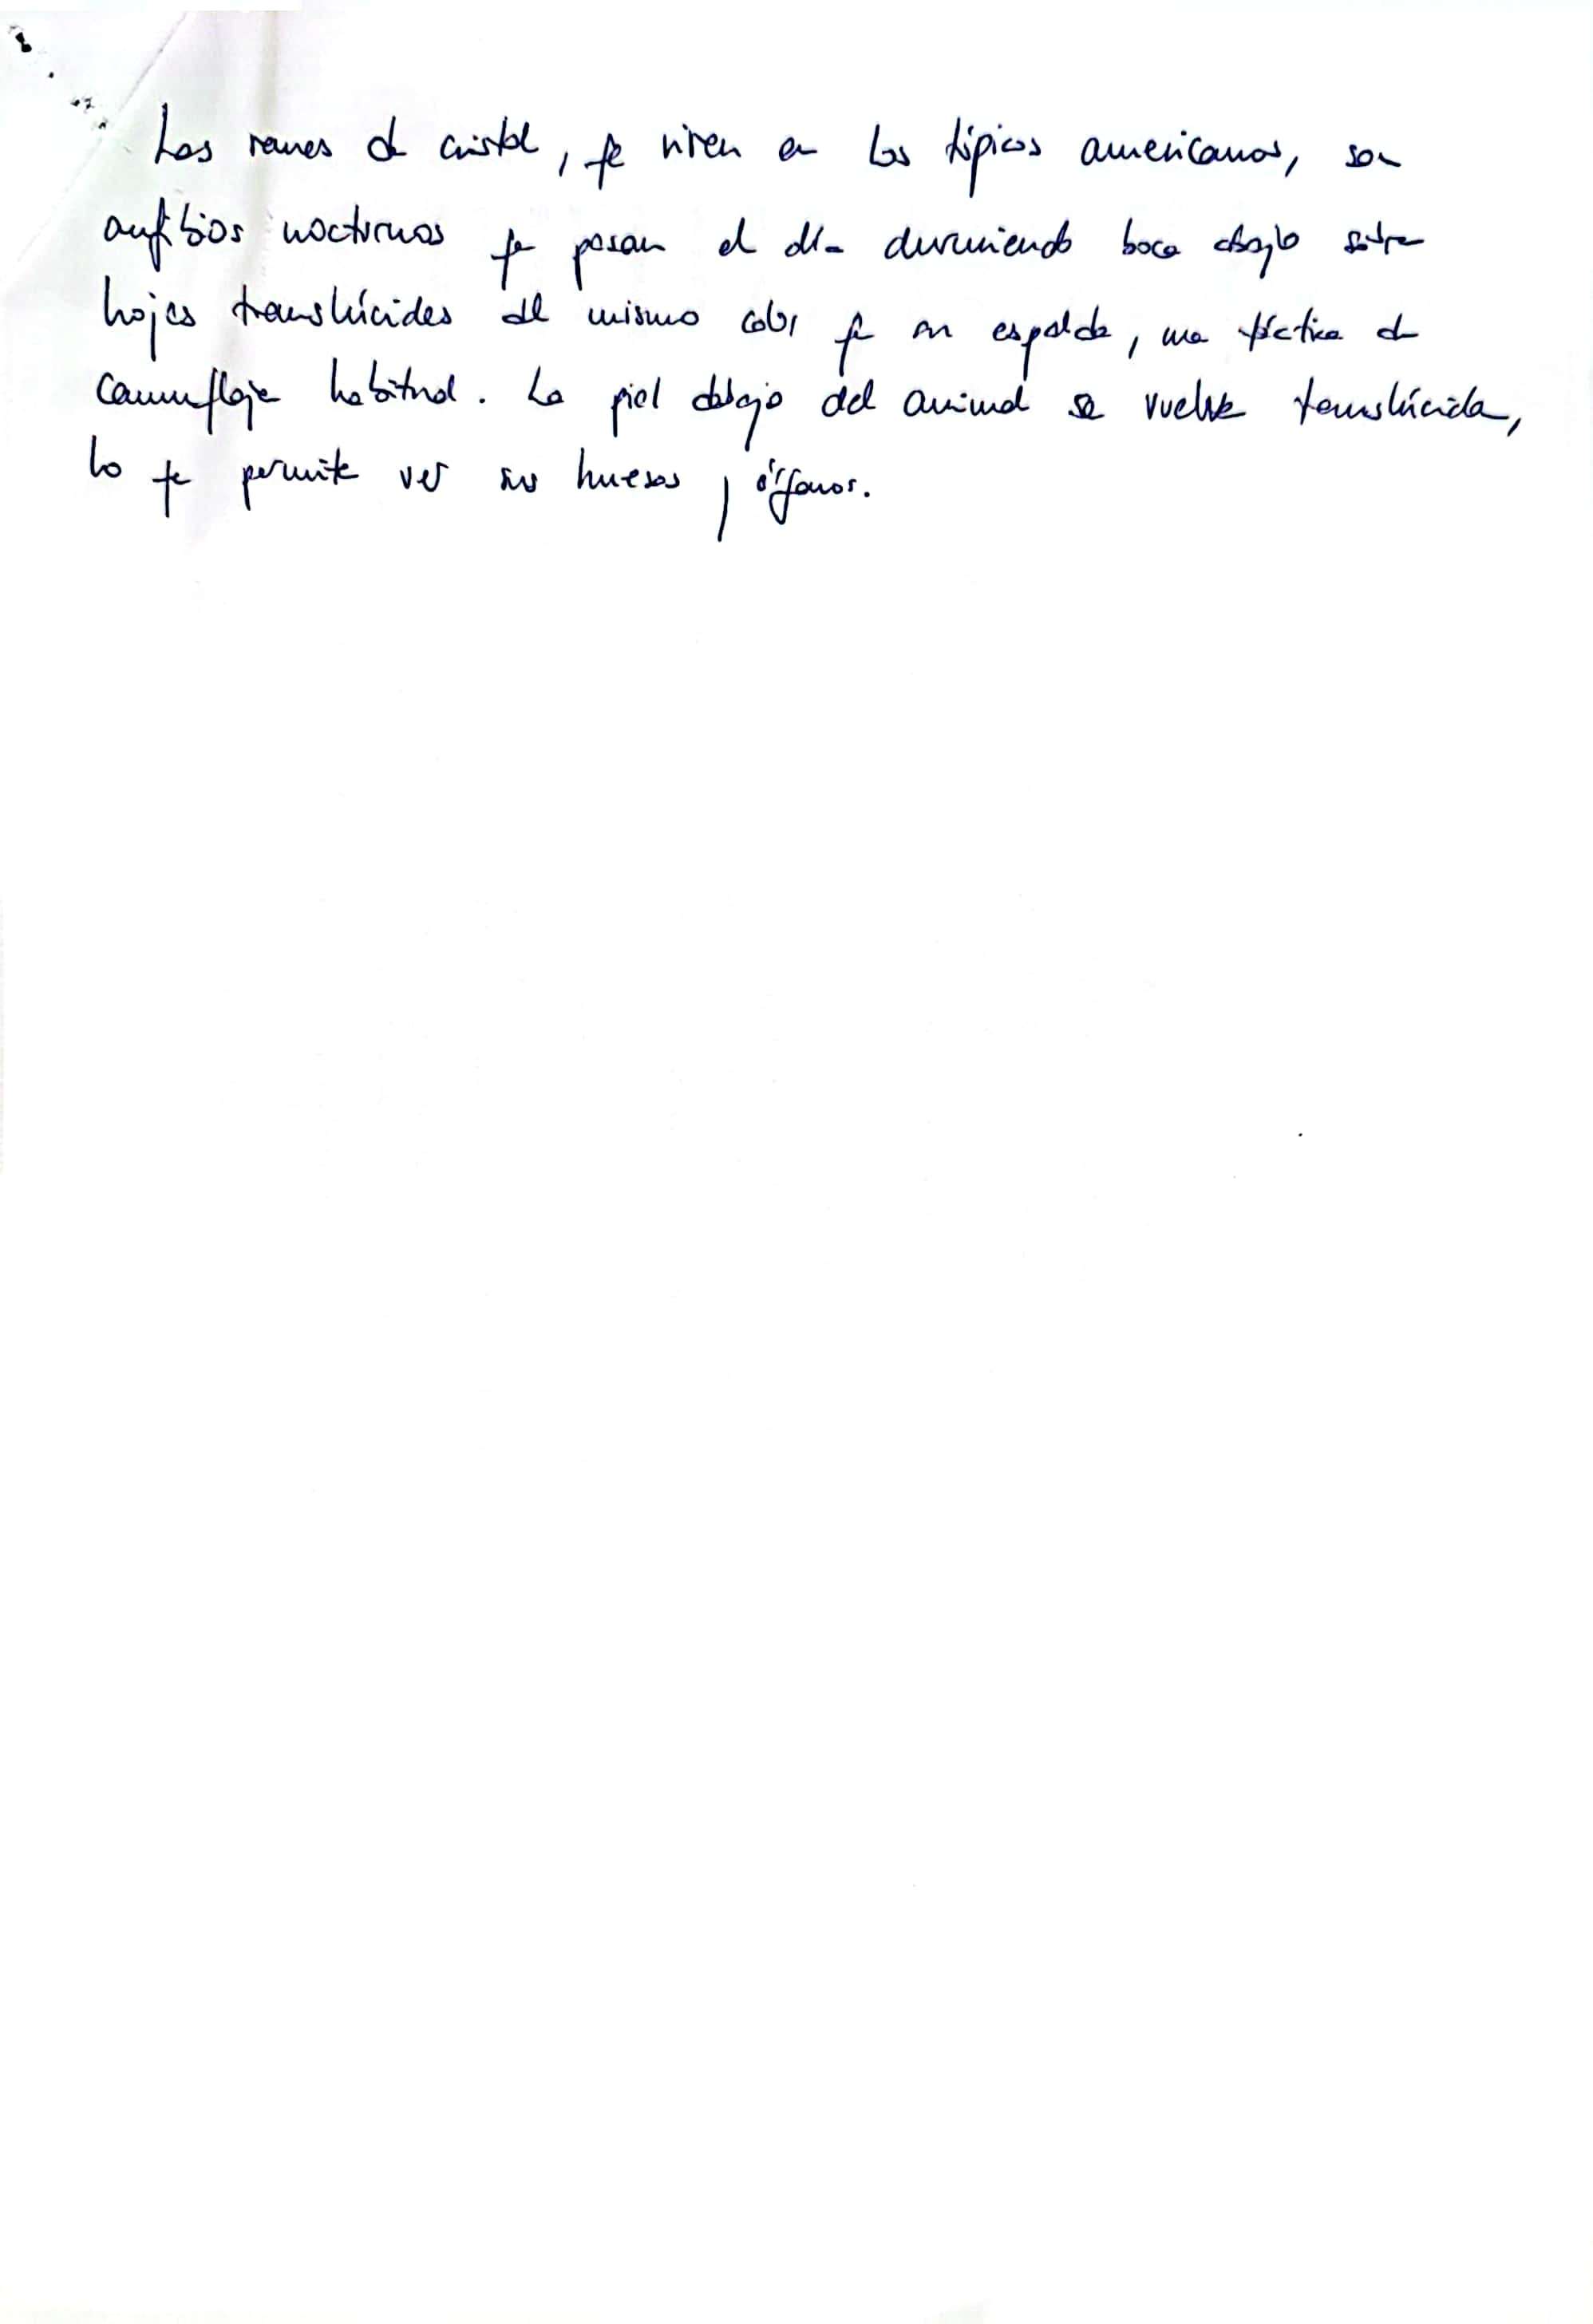 Las ranas de cristal, que viven en los trópicos americanos, son
anfibios nocturnos que pasan el día durmiendo boca abajo sobre
hojas translúcidas del mismo color que su espalda, una táctica de
camuflaje habitual. La piel debajo del animal se vuelve translúcida,
lo que permite ver sus huesos y órganos.